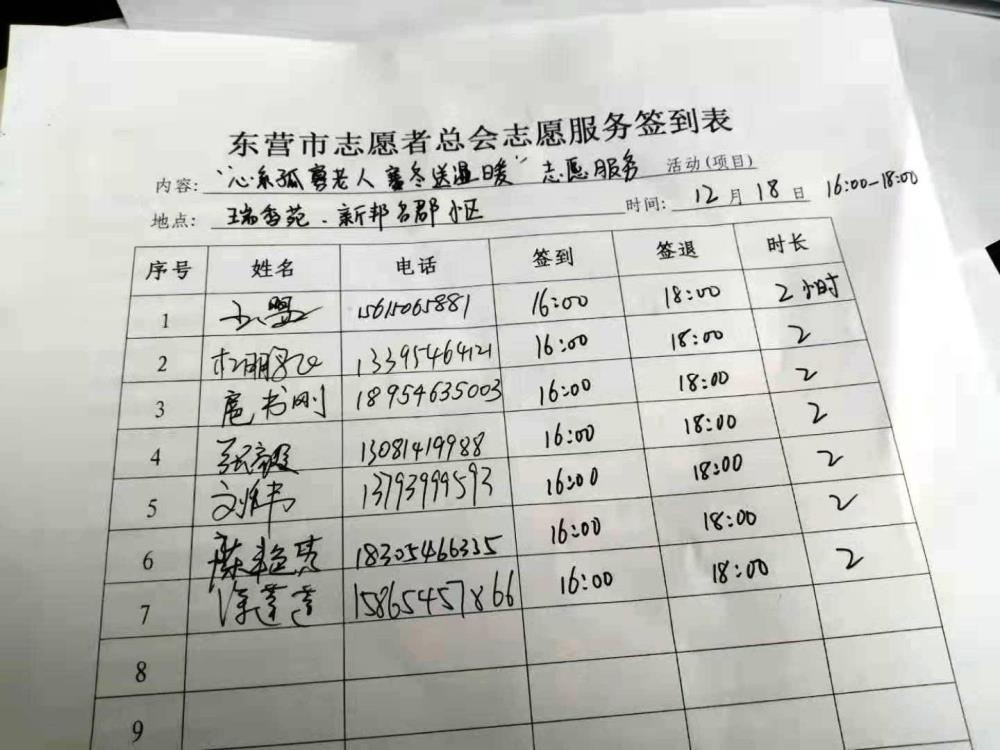 东营市志愿者总会志愿服务签到表
内容: "心系孤寡老人 寒冬送温暖" 志愿服务 活动(项目)
地点: 瑞香苑、新邦名郡小区 时间: 12月18日 16:00-18:00
序号 姓名 电话 签到 签退 时长
1 15615065881 16:00 18:00 2小时
2 13395464121 16:00 18:00 2
3 扈书刚 18954635003 16:00 18:00 2
4 13081419988 16:00 18:00 2
5 13793999593 16:00 18:00 2
6 18305466335 16:00 18:00 2
7 15865457866 16:00 18:00 2
8
9